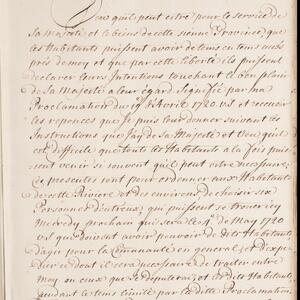 Veu qu'il peut estre pour le service de
Sa Majesté et le biens de cette sienne Province, que
les Habitants puissent avoir de tems en tems accés
près de moy et que par cette liberté ils puissent
declarer leurs Intentions touchant le bon plaisir
de Sa Majesté a leur egard Signifié par ma
Proclamation du Avril 1720 et recevoir
les reponces que Je puis leur donner suivant les
Instructions que J'ay de Sa Majesté et Veu qu'il
est difficile que touts les Habitants a la fois puis
sent venir si souvent qu'il peut etre necessaire,
Ces presentes sont pour ordonner aux Habitants
de cette Riviere et des environs de choisir six
Personnes d'entreux, qui puissent se trouver icy
Mecredy prochain qui sera le 4e de May 1720
qui doivent avoir pouvoir de dits Habitants
d'agir pour la Communauté en general, et d'expe
dier ce dont il sera necessaire de traiter entre
moy ou ceux que Je deputerai, et les dits Habitants
pendant le tems limité par la ditte Proclamation